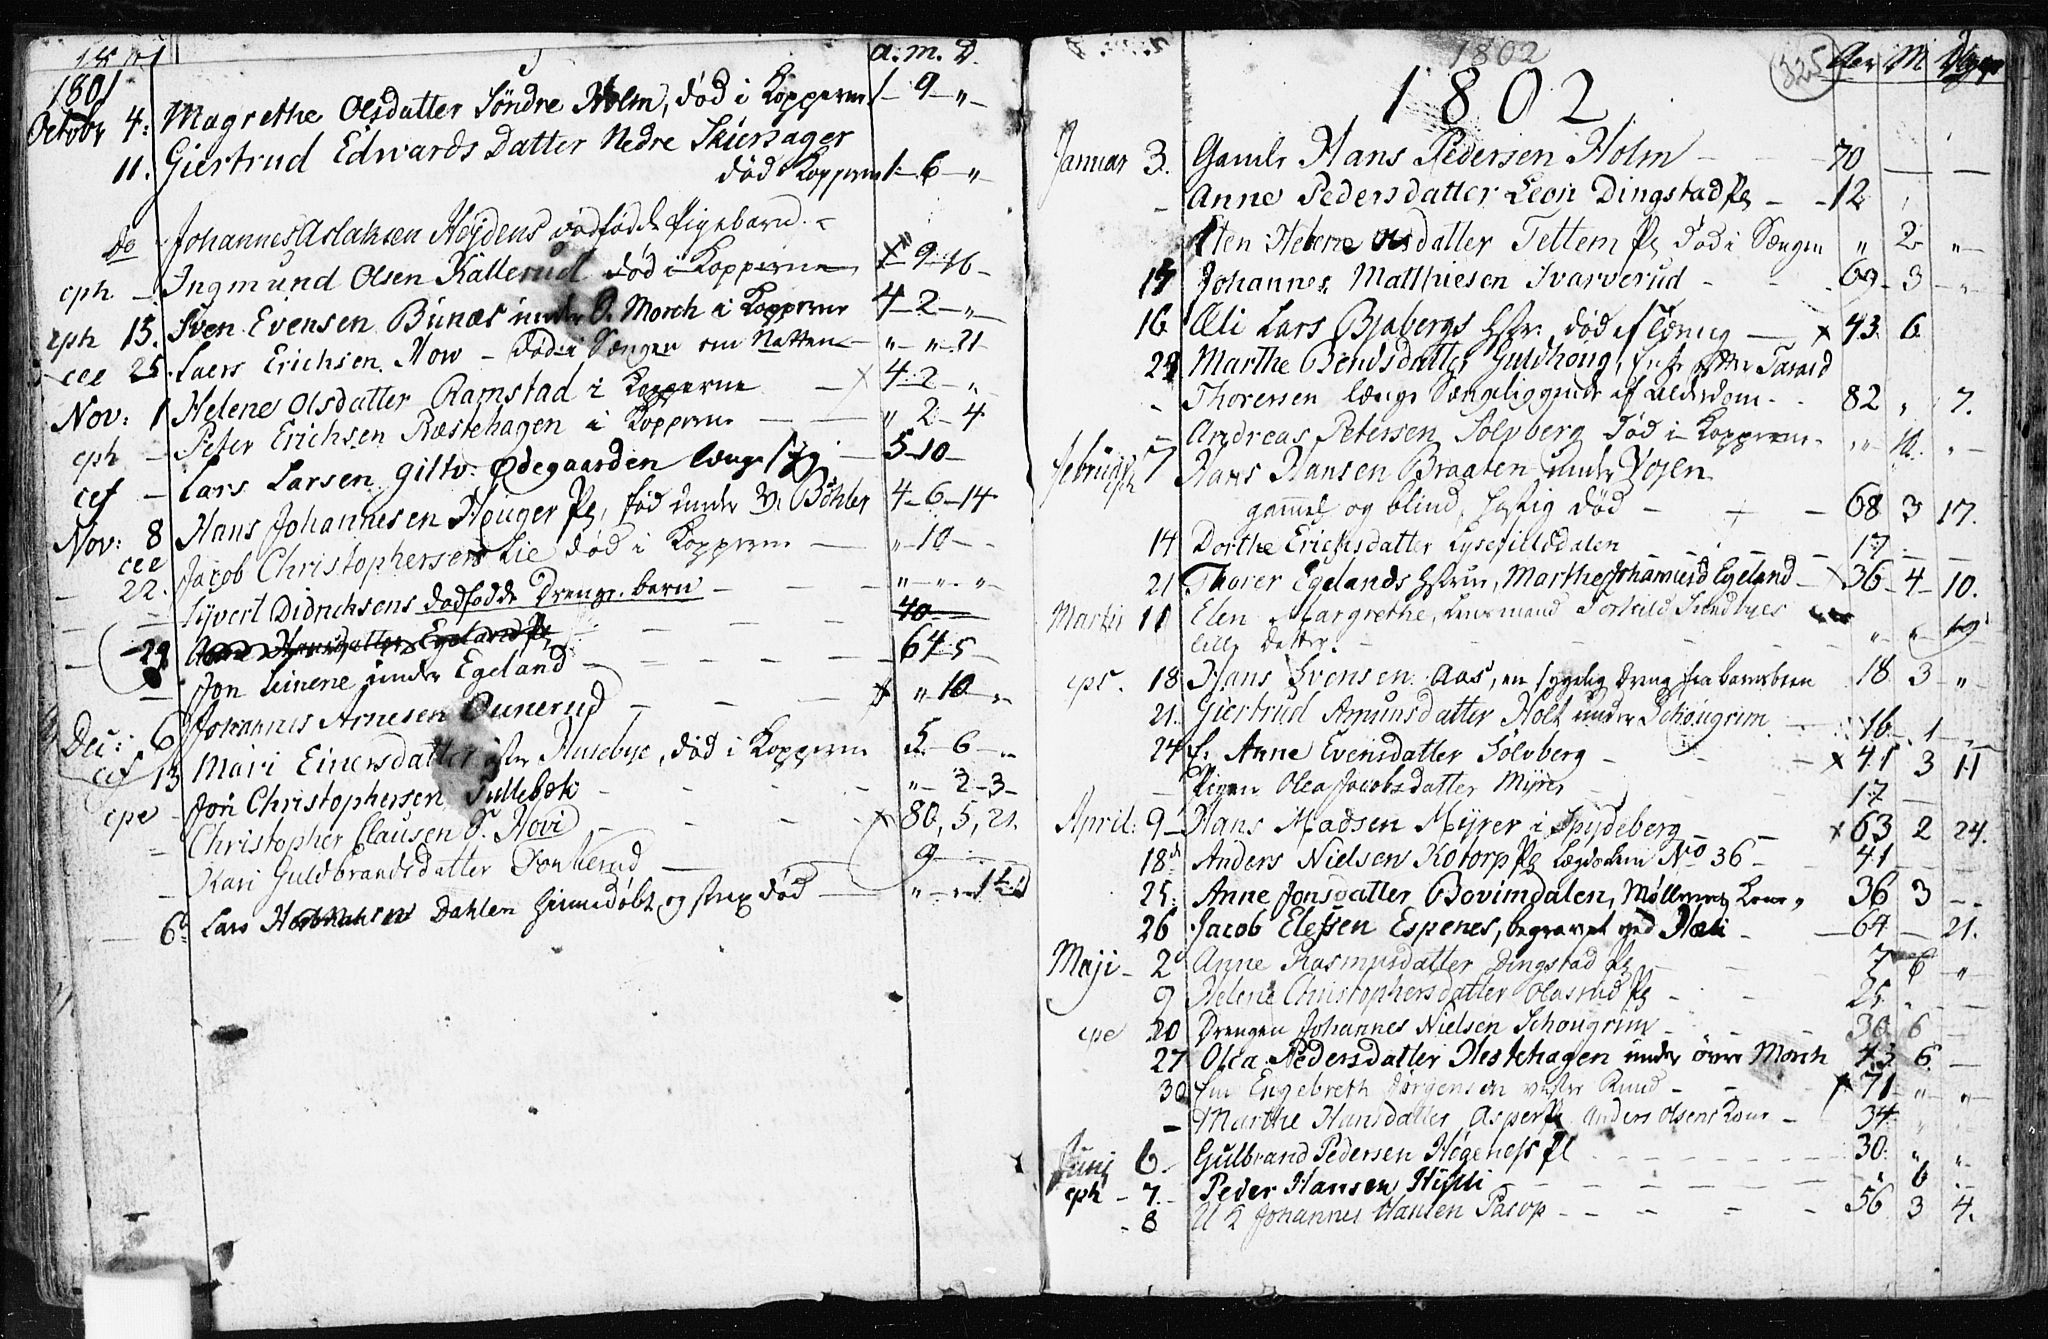 1801
a. m. D.
1801
Octobr 4. Magrethe Olsdatter Söndre Holm, død i Kopperne 1 - 9 - "
11. Giertrud Edwards Datter Nedre Skiersager
død i Kopperne 1 - 6 - "
Do Johannes Aslaksen Høydens dødfødde Pigebarn
eph - Ingmund Olsen Kallerud død i Kopperne 9 - 16 -
eph 15. Sven Evensen Bunæs under O. Morch i Kopperne 4 - 2 - "
cee 25. Laers Erichsen How - død i Sængen om Natten " " 21
Nov: 1 Helene Olsdatter Ramstad i Kopperne 4 - 2 - "
eph - Peter Erichsen Ræstehagen i Kopperne " 2 - 4
cef - Lars Larsen giltv: Ødegaarden længe syg 5 - 10 -
Nov: 8 Hans Johannesen Houger Pl, fød under V. Böhler 4 - 6 - 14
cee Jacob Christophersen Lie død i Kopperne " - 10 -
22. Syvert Didrichsens dødfødde Drenge barn " " "
40
29
Jon Leinene under Egeland 64 5
Johannes Arnesen Dunerud " 10 "
Dec: 6 Mari Einersdatter Husebye, død i Kopperne 5 - 6 - "
cef 13 Jon Christophersen Tullebæk " - 2 - 3 -
epe - Christopher Clausen S. Hovi 80, 5, 21.
- Kari Guldbrandsdatter Tonnerud 9
6 Lars Dahlen hiemedøbt og strax død " - " -
1802
325
Aar M Dage
1802
Januar 3. Gamle Hans Pedersen Holm 70
- Anne Pedersdatter Leon Dingstad Pl 12
Elen Helene Olsdatter Tettem Pl død i Sængen " 2 "
17 Johannes Matthiesen Svarverud 69 - 3 - "
16 Æli Lars Bjabergs hstr. død x 43. 6
24 Marthe Bendsdatter Guldhoug,
- Thoressen længe Sængeliggende af Alderdom 82 " 7.
- Andreas Petersen Solvberg død i Kopperne " 10. "
Februar 7 Hans Hansen Braaten under Vosen
gammel og blind, hastig død 68 3 17.
14 Dorthe Erichsdatter Lysefieldalen 17
21 Thorer Egelands hstrue, Marthe Johannesd Egeland 36 - 4 - 10.
Martii 11 Elen Margrethe, Lensmand Torkild Sundbyes
lille datter. " " 19
18 Hans Svensen Aas, en sygelig Dreng fra barnsbeen 18. 3 "
21. Giertrud Amunsdatter Holt under Schougrim 16. 1
24 Anne Evensdatter Solvberg x 41 3 11
Pigen Olea Jacobsdatter Myrer 17
April 9 - Hans Madsen Myrer i Spydeberg x 63 2 24.
18. Anders Nielsen Kotorp Pl Lægdslem No 36 - 41 -
25. Anne Jonsdatter Bovimdalen, Møllerens Kone, 36 3
26 Jacob Elefsen Espenes, begravet ved Hæli 64 - 21.
Maji - 2 Anne Rasmusdatter Dingstad Pl 7 6 "
9 Helene Christophersdatter Olasrud Pl 25.
epe 20 Drengen Johannes Nielsen Schougrim 30 6
27 Olea Pedersdatter Hestehagen under øvre Morch 43 6.
30 Engebreth Jørgensen vester Ruud x 71 " "
- Marthe Hansdatter Asper Pl Anders Olsens Kone - 34
Junj 6 Gulbrand Pedersen Høgenefs Pl 30. " "
eph - 7. Peder Hansen Hylli " 6
- 8 Johannes Hansen Parop 56 3 4.